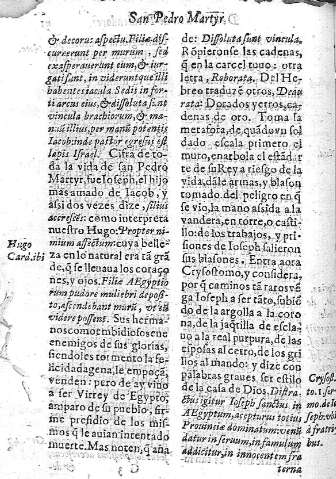 San Pedro Martyr.
& decorus aspectu. Filiæ dis-
currerunt per murum, sed
exasperauerunt eum, & iur-
gati sunt, inviderunt que illi
habentes iacula. Sedit in for-
ti arcus eius, & dissoluta sunt
vincula brachiorum, & ma-
nuũ illius, per manũ potentis
Iacob: inde pastor egresus est
lapis Israel. Cifra de to-
da la vida de san Pedro
Martyr, fue Ioseph, el hijo
mas amado de Iacob, y
assi dos vezes dize, filius
accrescẽs: como interpreta
nuestro Hugo: Propter ni-
mium aspectum: cuya belle-
za en lo natural era tã grã
de, q̃ se lleuaua los coraço
nes, y ojos. Filiæ AEgyptio
rum pudore muliebri deposi-
to, ascendebant murũ, vt eũ
videre possent. Sus herma-
nos como embidiosos, e
enemigos de sus glorias,
siendoles tormento la fe-
licidad agena, le empoçã,
venden: pero de ay vino
a ser Virrey de Egypto,
amparo de su pueblo, fir-
me presidio de los mis-
mos q̃ le auian intentado
muerte. Mas noten, q̃ aña
Hugo
Card. ibi
de: Dissoluta sunt vincula.
Ropieronse las cadenas,
q̃ en la carcel tuuo: otra
letra, Roborata. Del He-
breo traduzẽ otros, Deau
rata: Dorados yerros, ca-
denas de oro. Toma la
metafora, de quãdo vn sol
dado escala primero el
muro, enarbola el estãdar
te de su Rey a riesgo de la
vida, dãle armas, y blason
tomado del peligro en q̃
se vio, la mano asida a la
vandera, en torre, o casti-
llo: de los trabajos, y pri-
siones de Ioseph salieron
sus blasones. Entra aora
Crysostomo, y considera,
por q̃ caminos tã raros vẽ
ga Ioseph a ser tãto, subiẽ
do de la argolla a la coro
na, de la jaq̃tilla de escla-
uo a la real purpura, de las
esposas al cetro, de los gri
llos al mando: y dize con
palabras graues ser estilo
de la casa de Dios. Distra
hitur igitur Ioseph sanctus in
AEgyptum, accepturus totius
Prouinciæ dominatum: vendi
datur in seruum, in famulum
addicitur, in innocentem fra
terna
Crysost.
to. 1. ser
mo. de Io
seph. vẽdi
à fratri
but.